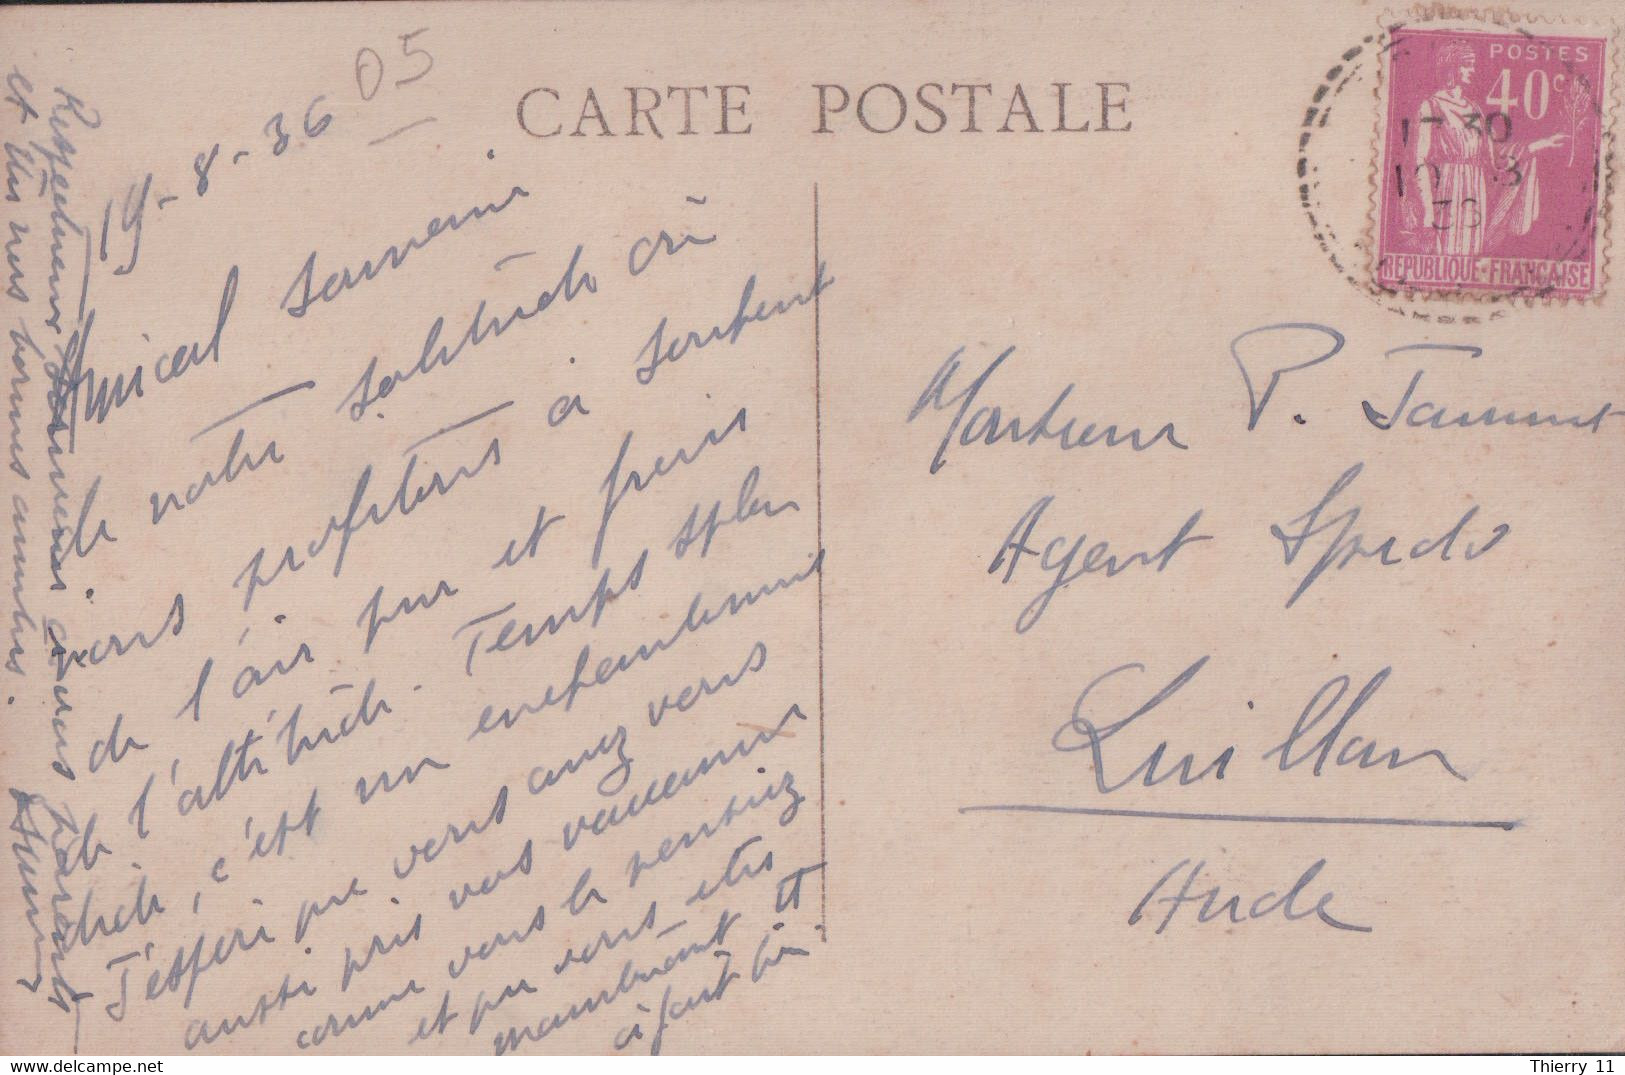 05
CARTE POSTALE
POSTES
40c
17 30
19 8
36
REPUBLIQUE·FRANÇAISE
19-8-36
Amical souvenir
de notre solitude où
nous profitons à
de l'air pur et frais
de l'altitude. Temps splen
dide, c'est un enchantement
J'espère que vous avez vous
aussi pris vos vacances
comme vous le pensiez
et que vous êtes
maintenant
à fait
Respectueux souvenirs à vos parents
et à nos bonnes amitiés.
Monsieur P.
Agent Spido
Quillan
Aude
Delcampe.net
Thierry 11